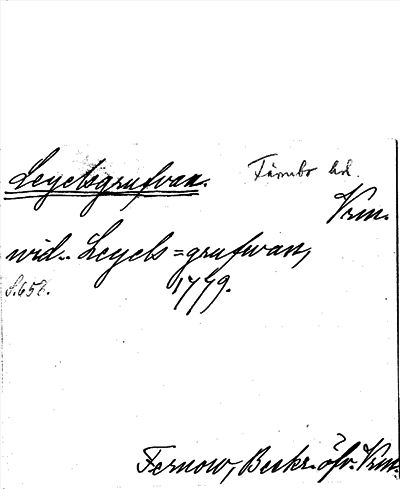 Leyelsgrufvan. Färnebo hd.
Vrm.
vid.. Leyels=grufwan,
S. 652. 1779.
Fernow, Beskr. öfv. Vrm.